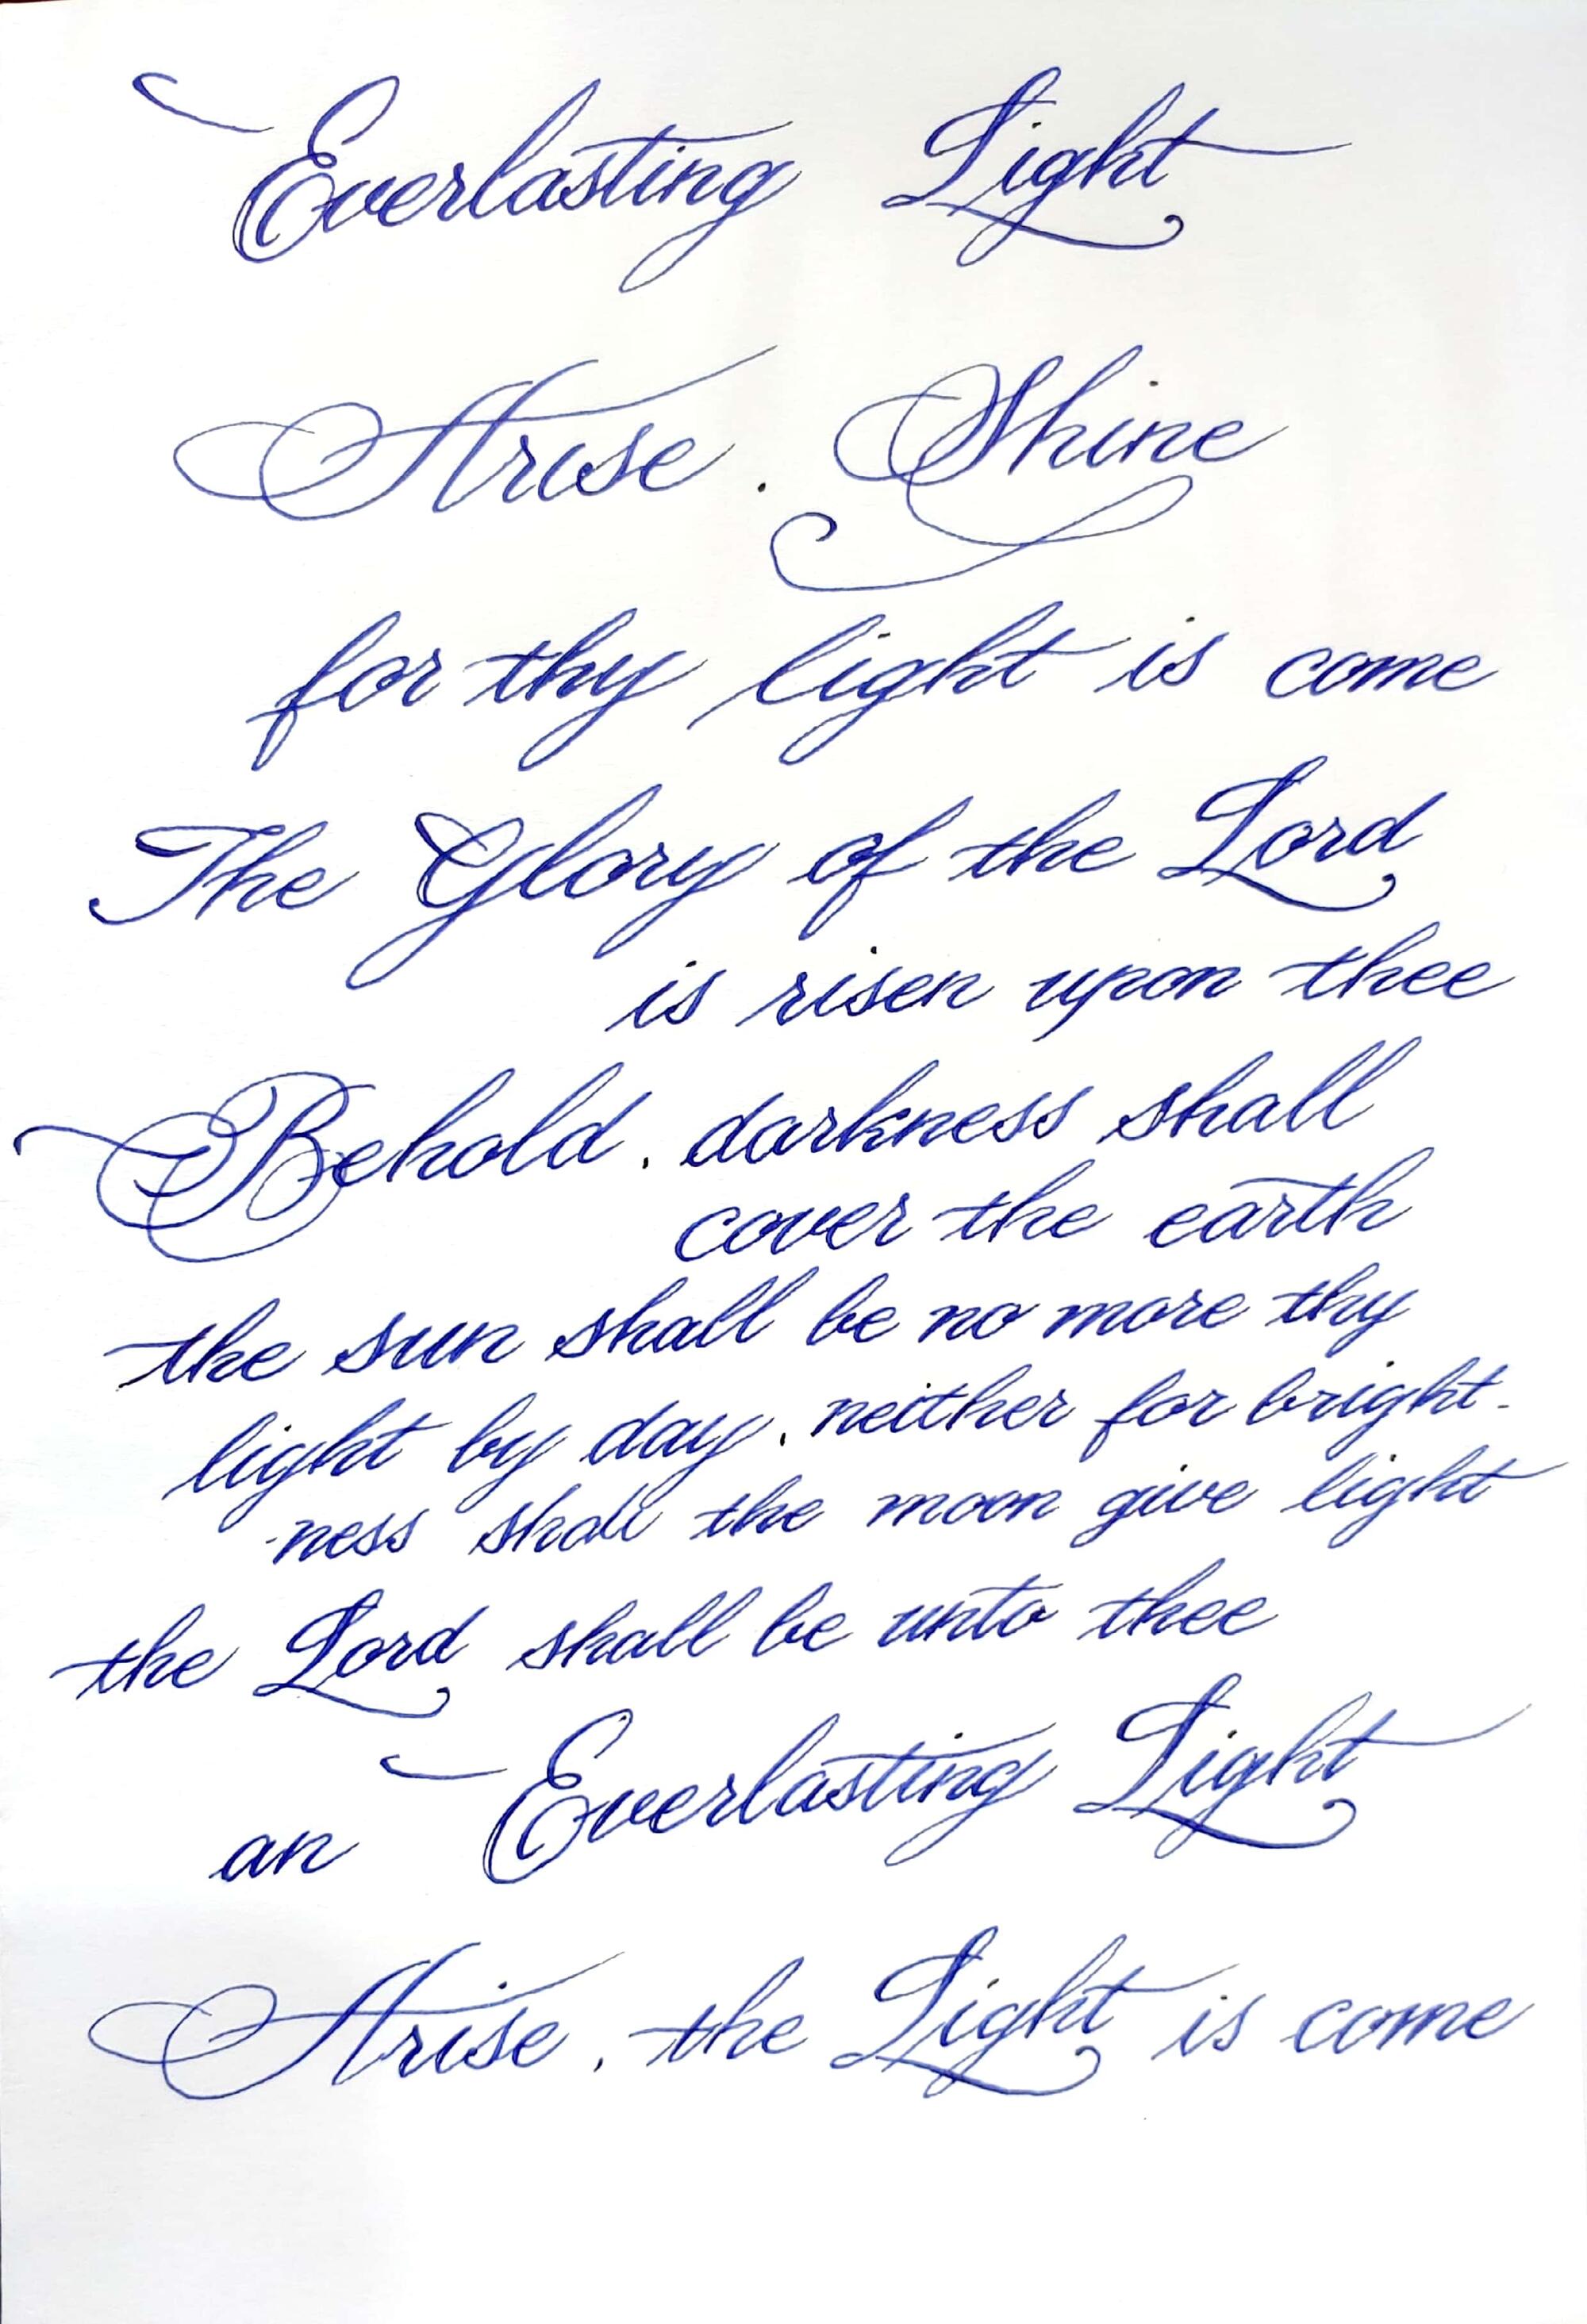 Everlasting Light
Arise . Shine
for thy light is come
The Glory of the Lord
is risen upon thee
Behold . darkness shall
cover the earth
the sun shall be no more thy
light by day , neither for bright-
-ness shall the moon give light
the Lord shall be unto thee
an Everlasting Light
Arise , the Light is come